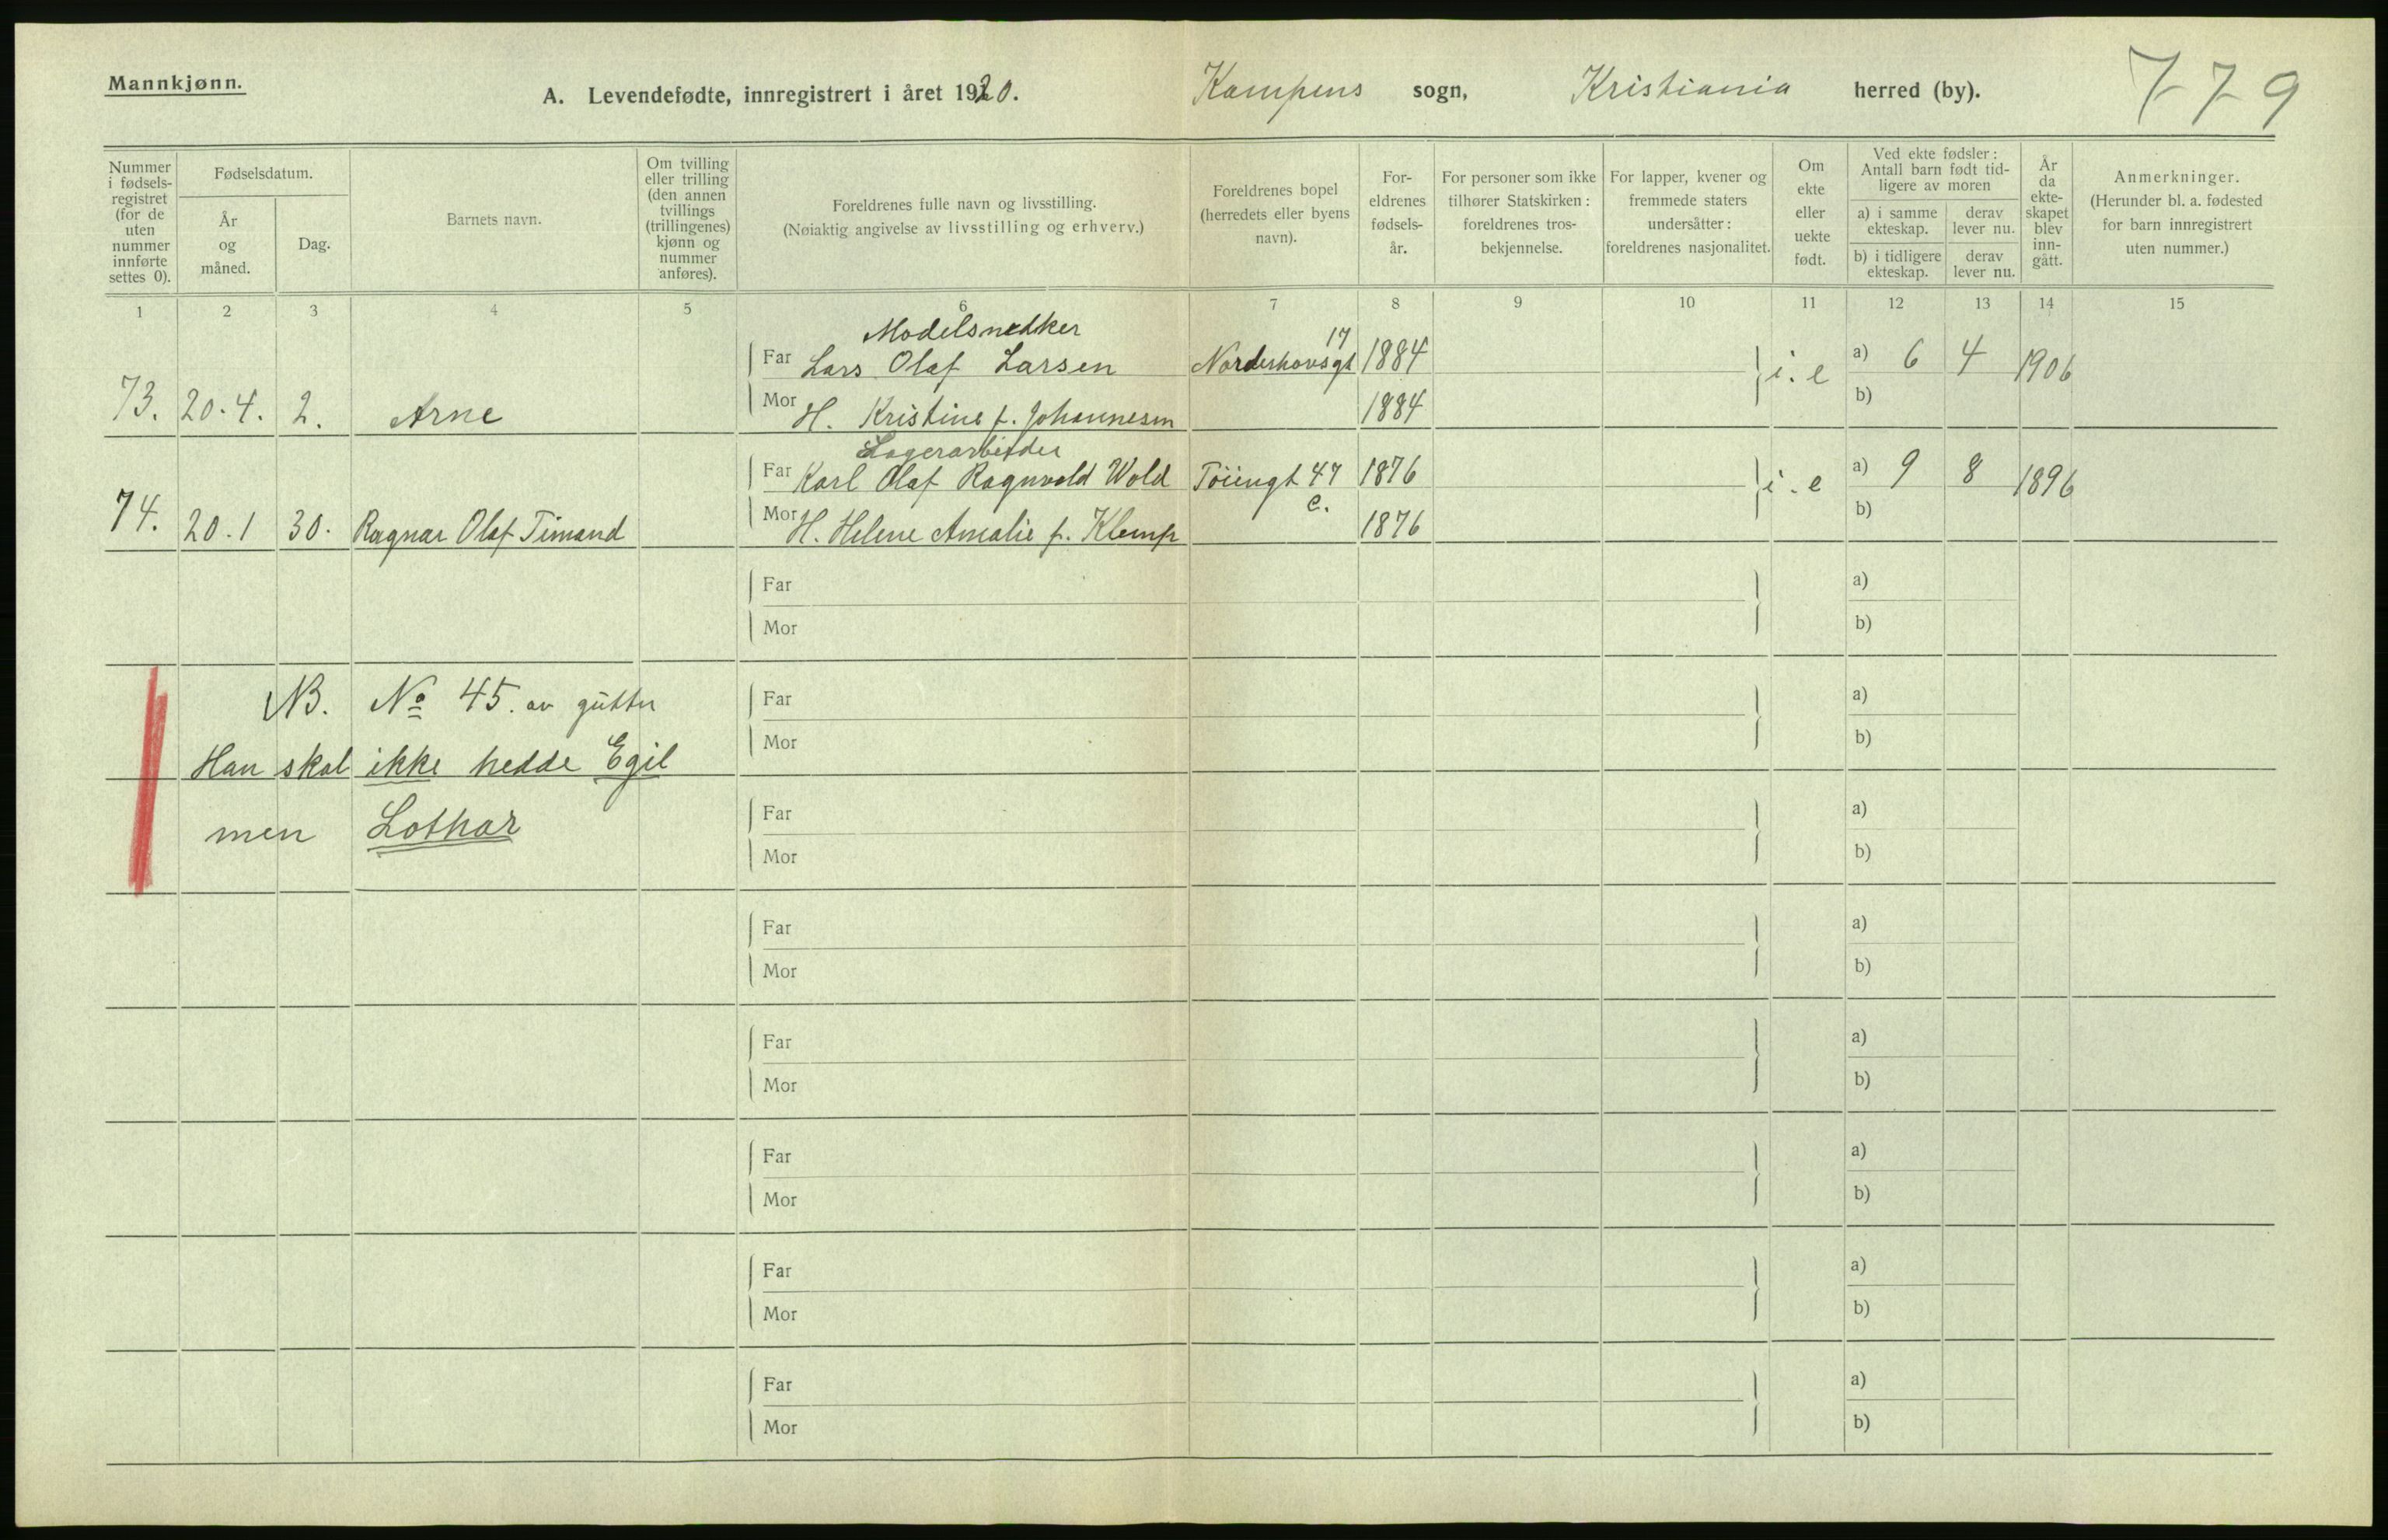 Mannkjønn.
A. Levendefødte, innregistrert i året 1920.
Kampens sogn, Kristiania herred (by).
779
Nummer i fødsels-registret (for de uten nummer innførte settes 0).
Fødselsdatum.
År og måned.
Dag.
Barnets navn.
Om tvilling eller trilling (den annen tvillings (trillingenes) kjønn og nummer anføres).
Foreldrenes fulle navn og livsstilling.
(Nøiaktig angivelse av livsstilling og erhverv.)
Foreldrenes bopel (herredets eller byens navn).
For-eldrenes fødsels-år.
For personer som ikke tilhører Statskirken: foreldrenes tros-bekjennelse.
For lapper, kvener og fremmede staters undersåtter: foreldrenes nasjonalitet.
Om ekte eller uekte født.
Ved ekte fødsler: Antall barn født tid-ligere av moren
a) i samme ekteskap.
derav lever nu.
b) i tidligere ekteskap.
derav lever nu.
År da ekte-skapet blev inn-gått.
Anmerkninger.
(Herunder bl. a. fødested for barn innregistrert uten nummer.)
1 2 3 4 5 6 7 8 9 10 11 12 13 14 15
Modelsnedker 17
Far Lars Olaf Larsen Norderhovsgt 1884 i. e a) 6 4 1906
73. 20.4. 2. Arne Mor H. Kristine f. Johannesen 1884 b)
Lagerarbeider
Far Karl Olaf Ragnvald Wold Töiengt 47 1876 i. e a) 9 8 1896
c.
74. 20.1 30. Ragnar Olaf Timand Mor H. Helene Amalie f. Klemp 1876 b)
Far a)
Mor b)
NB. No 45. av gutter Far a)
Mor b)
Han skal ikke hedde Egil
men Lothar Far a)
Mor b)
Far a)
Mor b)
Far a)
Mor b)
Far a)
Mor b)
Far a)
Mor b)
Far a)
Mor b)